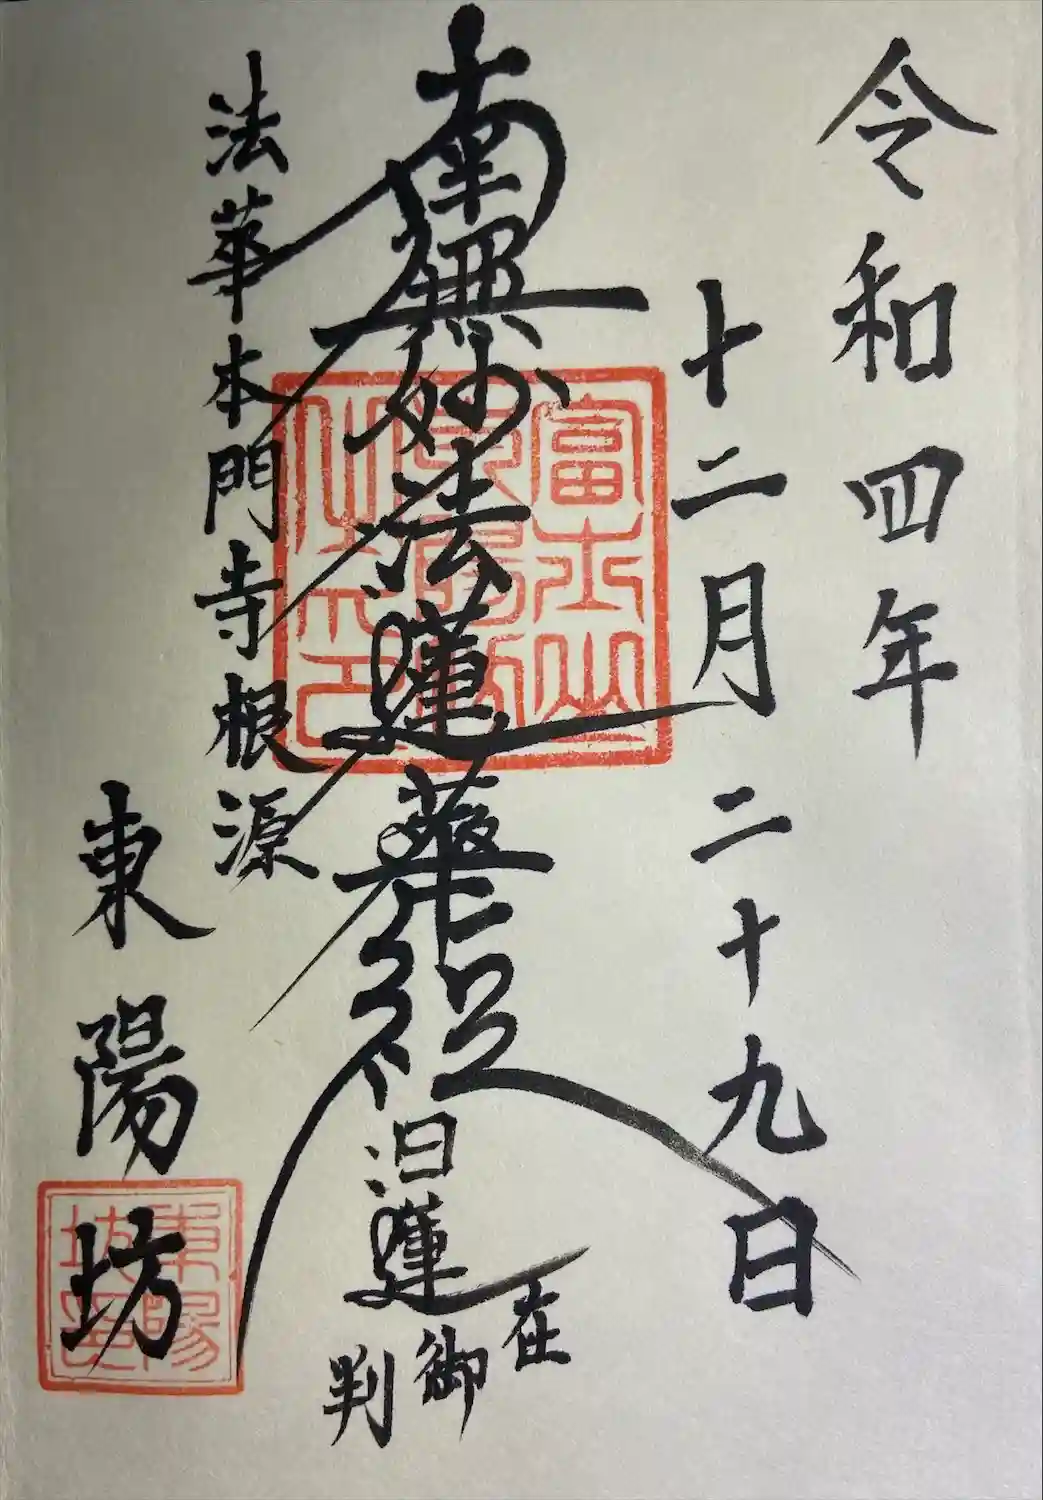 令和四年
十二月二十九日
南無妙法蓮華経
日蓮
在
御
判
法華本門寺根源
東陽坊
富士山